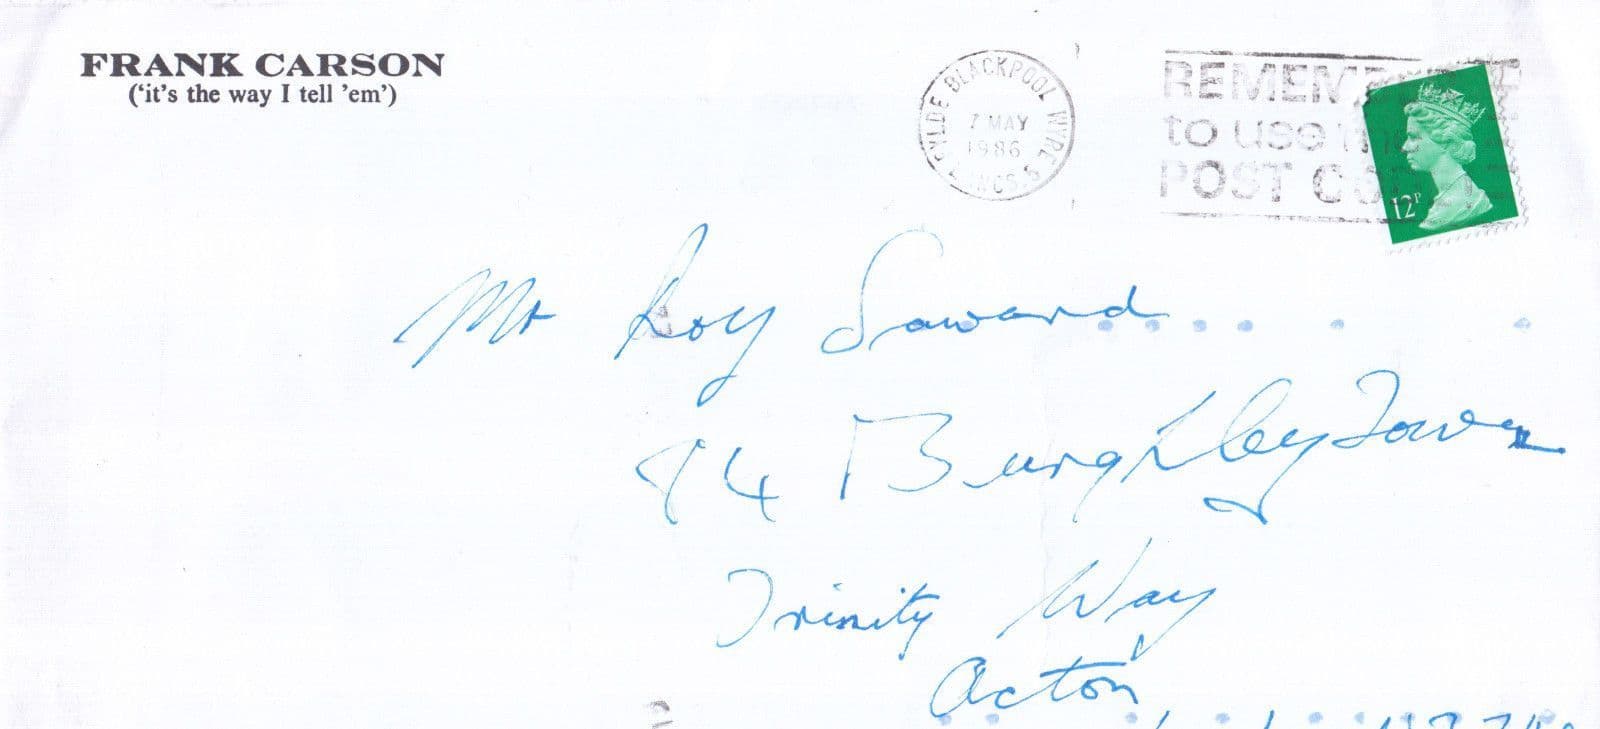 FRANK CARSON
('it's the way I tell 'em')
FYLDE BLACKPOOL WYRE
7 MAY
1986
LANCS. 5
REMEMBER
to use the
POST CODE
12P
Mr Roy Saward
84 Burghley Tower
Trinity Way
Acton